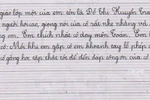 giáo lớp mới của em tên là Đỗ Thị Huyền Tran
người hơi cao, giọng nói của cô rất nhẹ nhàng và
em. Em thích nhất cô dạy môn Toán. Em
cô. Mỗi khi em gặp cô em khoanh tay lễ phép chào
cố gắng học tập thật tốt để đền đáp công ơn của cô